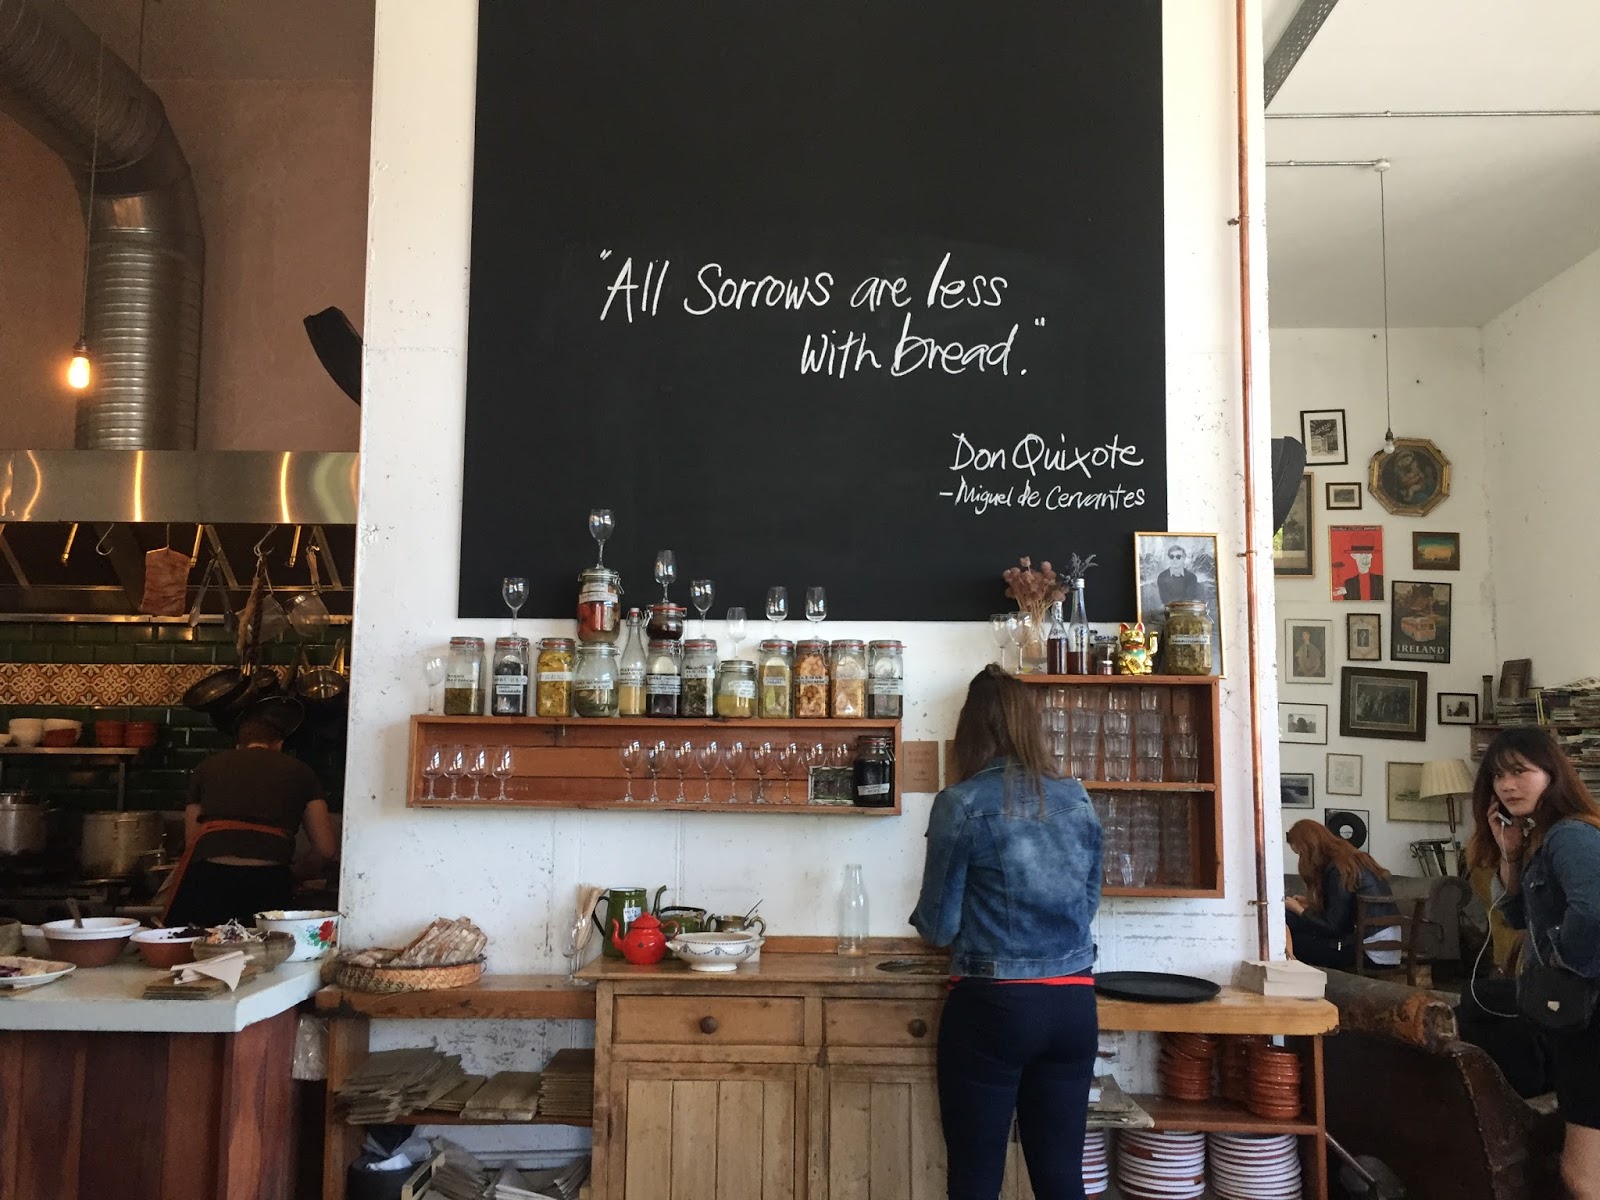 "All Sorrows are less
with bread."
Don Quixote
-Miguel de Cervantes
IRELAND